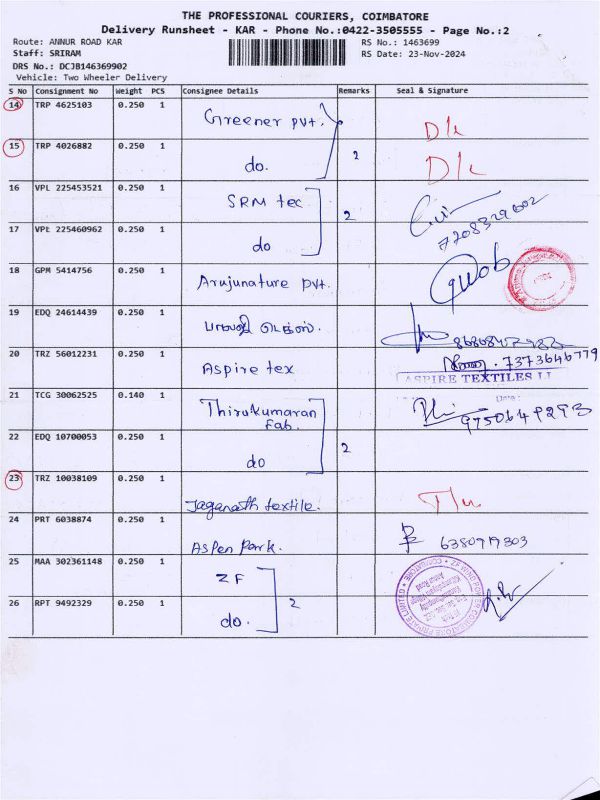 THE PROFESSIONAL COURIERS, COIMBATORE
Delivery Runsheet - KAR - Phone No.:0422-3505555 - Page No.:2
Route: ANNUR ROAD KAR
RS No.: 1463699
Staff: SRIRAM
RS Date: 23-Nov-2024
DRS No.: DCJB146369902
Vehicle: Two Wheeler Delivery
S No Consignment No Weight PCS Consignee Details Remarks Seal & Signature
14 TRP 4625103 0.250 1 Greener pvt.
15 TRP 4026882 0.250 1 do. 2
16 VPL 225453521 0.250 1 SRM tec 2
17 VPL 225460962 0.250 1 do
18 GPM 5414756 0.250 1 Arujunature pvt.
19 EDQ 24614439 0.250 1
20 TRZ 56012231 0.250 1 Aspire tex 7373646779
ASPIRE TEXTILES
21 TCG 30062525 0.140 1 Thirukumaran Fab. 9750649293
22 EDQ 10700053 0.250 1 do 2
23 TRZ 10038109 0.250 1 Jaganath textile.
24 PRT 6038874 0.250 1 Aspen Park.
25 MAA 302361148 0.250 1 ZF
26 RPT 9492329 0.250 1 do. 2